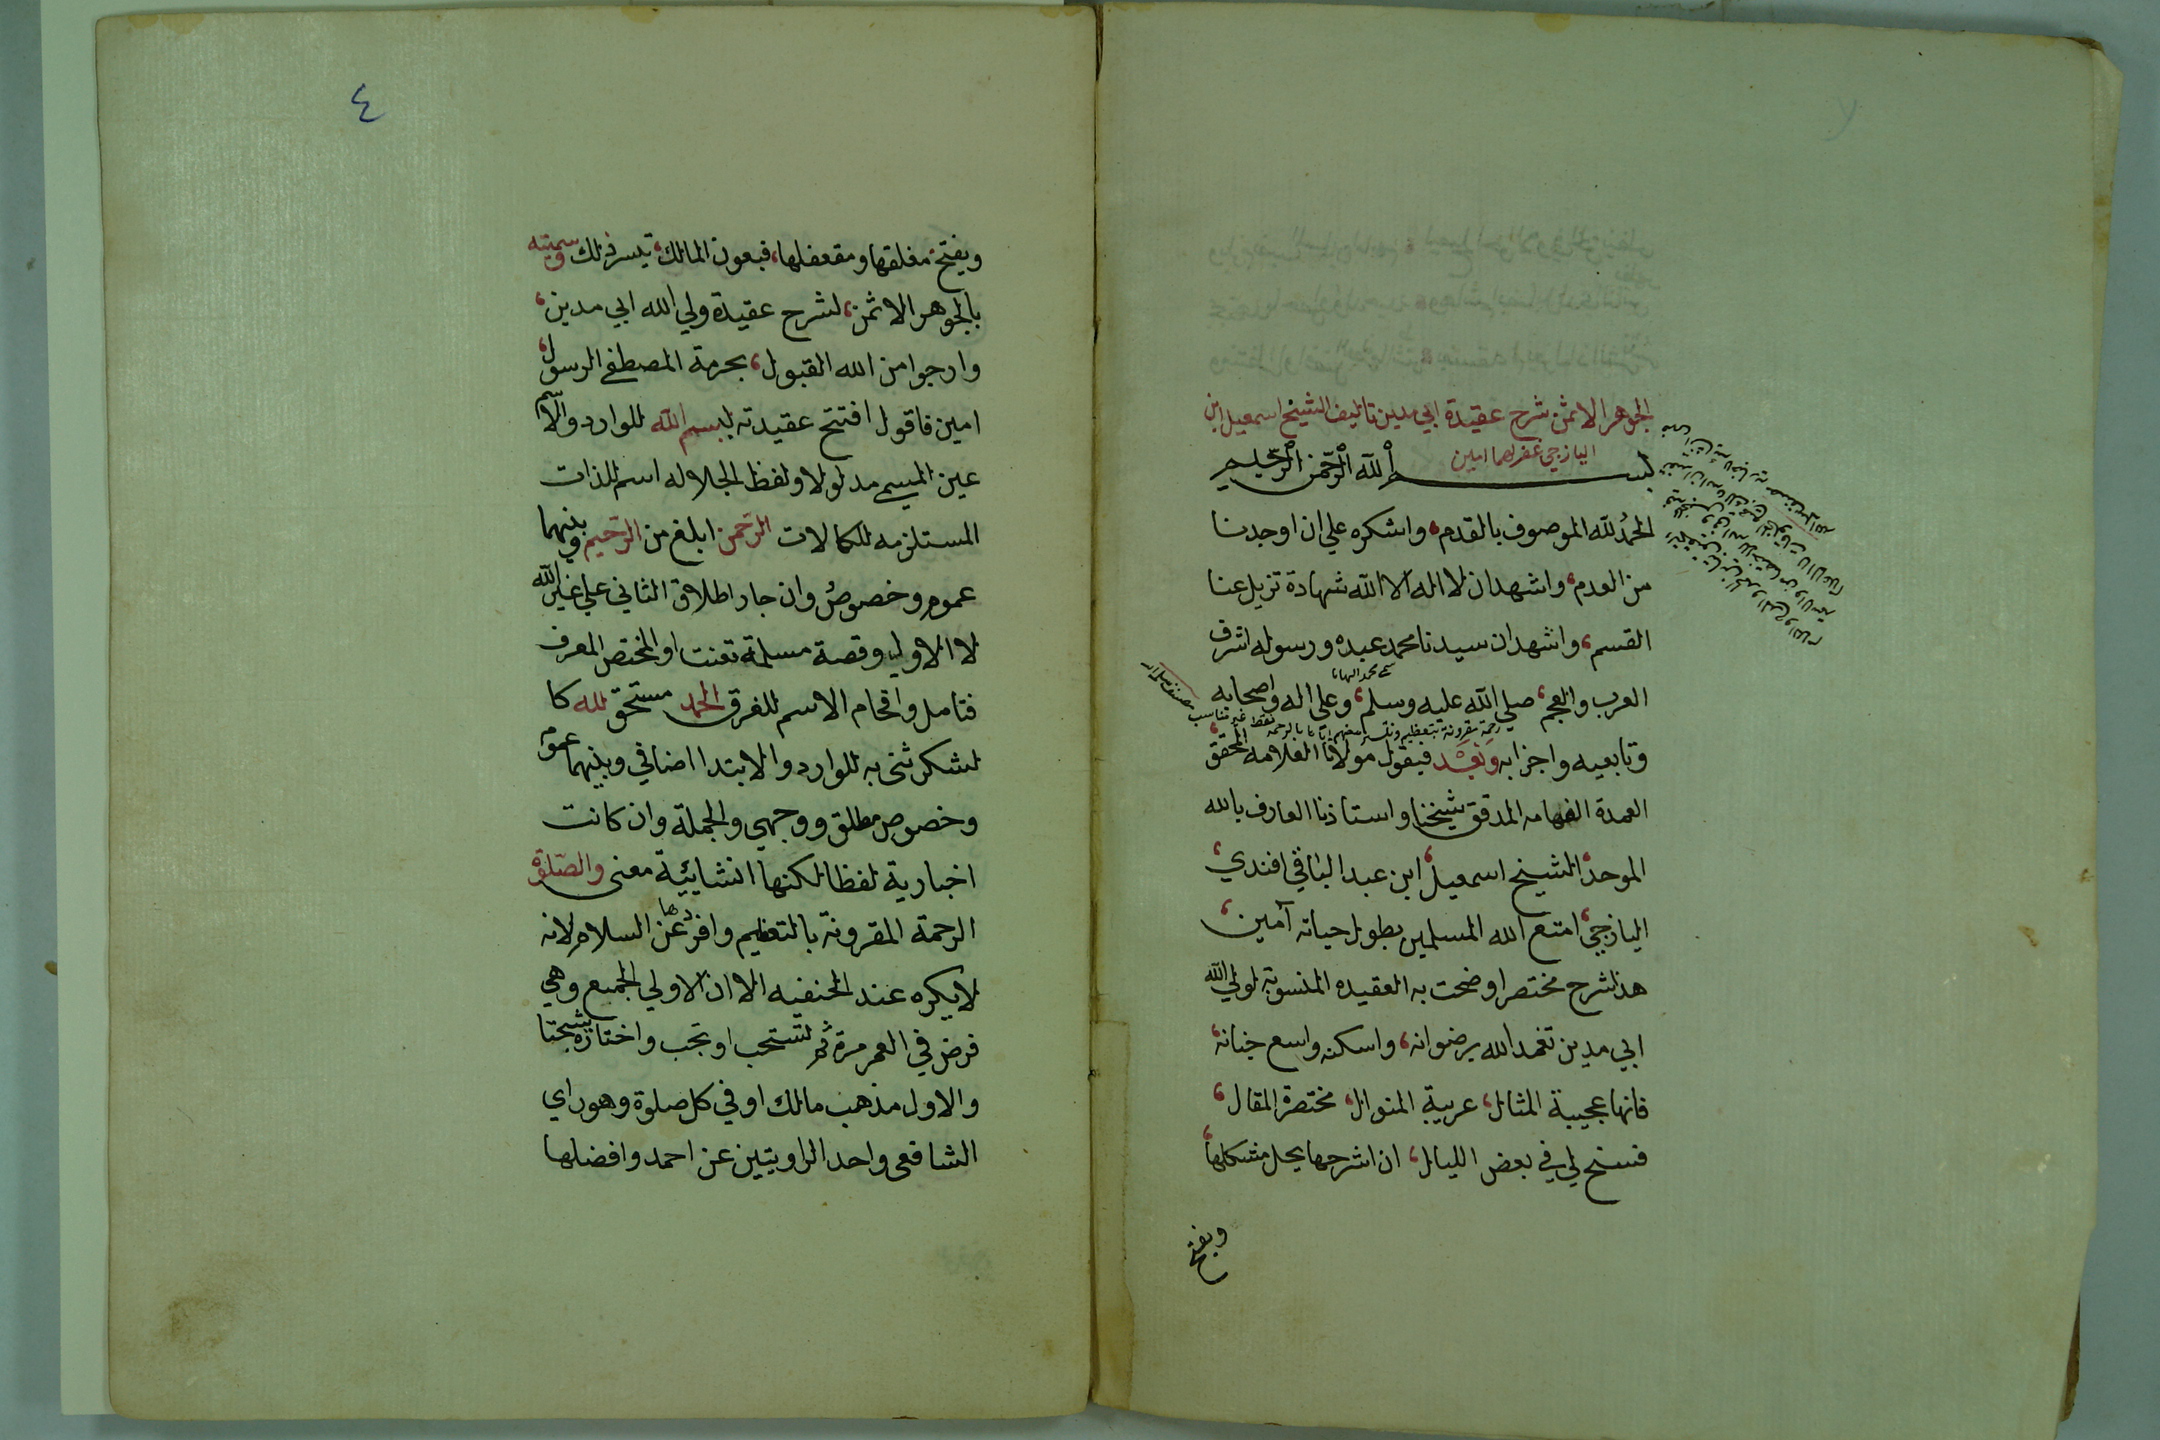 الجوهر الاثمن شرح عقيدة ابي مدين تاليف الشيخ اسمعيل ابن
اليازجي غفر لهما امين
بسم الله الرحمن الرحيم
الحمُد للّه الموصوف بالقدم، واشكره علي ان اوجدنا
من العدم، واشهد ان لا اله الا الله شهادة تزيل عنا
القسم، واشهد ان سيدنا محمد عبده ورسوله اشرف
العرب والعجم، صلي الله عليه وسلم، وعلي اله واصحابه
وتابعيه واحزابه وَبَعْد فيقول مولانا العلامه المحقق
العمدة الفهامه المدقق شيخنا واستاذنا العارف بالله
الموحد، الشيخ اسمعيل، ابن عبد الباقي افندي،
اليازجي، امتع الله المسلمين بطول حياته آمين،
هذ شرح مختصر اوضحت به العقيده المنسوبة لولي الله
ابي مدين تغمد الله برضوانه، واسكنه واسع جنانه،
فانها عجيبة المثال، غريبة المنوال، مختصرة المقال،
فسنح لي في بعض الليال، ان اشرحها بحل مشكلها،
ويفتح
٤
ويفتح مغلقها ومقفلها، فبعون المالك، تيسر ذلك وسميته
بالجوهر الاثمن، لشرح عقيدة ولي الله ابي مدين،
وارجوا من الله القبول، بحرمة المصطفي الرسول،
امين فاقول افتتح عقيدته ببسم الله للوارد والاسم
عين المسمي مدلولا ولفظ الجلاله اسم للذات
المستلزمه للكمالات الرّحمن ابلغ من الرّحيم وبينهما
عموم وخصوصُ وان جاز اطلاق الثاني علي غير الله
لا الاولي وقصة مسلمة تعنت او المختص المعرف
فتامل واقحام الاسم للفرق الحمد مستحق لله كا
لشكر ثني به للوارد والابتدا اضافي وبينهما عموم
وخصوص مطلق ووجهي والجملة وان كانت
اخبارية لفظا لكنها انشايئية معنى والصّلوة
الرحمة المقرونة بالتعظيم وافردها عن السلام لانه
لا يكره عند الحنفيه الا ان الاولي الجمع وهي
فرض في العمر مرة ثم تستحب او تجب واختاره شيخنا
والاول مذهب مالك او في كل صلوة وهو راي
الشافعي واحد الراويتين عن احمد وافضلها